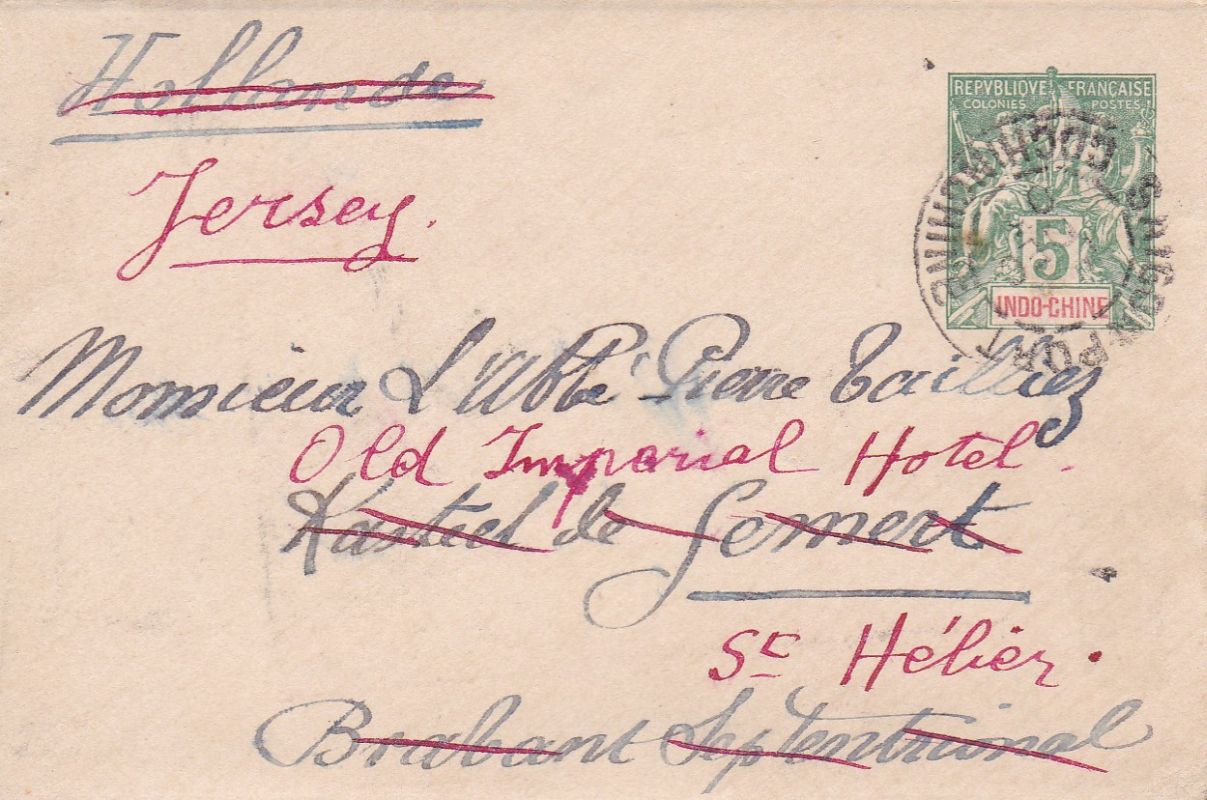 Hollande
Jersey.
REPVBLIQVE FRANÇAISE
COLONIES POSTES
5
INDO-CHINE
SAIGON PORT
COCHINCHINE
Monsieur L'Abbé Pierre Tailliez
Old Imperial Hotel.
Kasteel de Gemert
St Hélier.
Brabant Septentrional